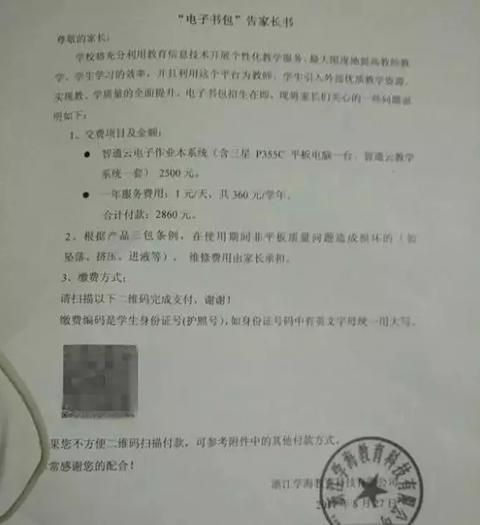 “电子书包”告家长书
尊敬的家长：
学校将充分利用教育信息技术开展个性化教学服务，最大限度地提高教师教
学、学生学习的效率，并且利用这个平台为教师、学生引入外部优质教学资源，
实现教、学质量的全面提升。电子书包招生在即，现将家长们关心的一些问题说
明如下：
1、交费项目及金额：
● 智通云电子作业本系统（含三星 P355C 平板电脑一台、智通云教学
系统一套） 2500 元。
● 一年服务费用：1 元/天，共 360 元/学年。
合计付款：2860 元。
2、根据产品三包条例，在使用期间非平板质量问题造成损坏的（如
坠落、挤压、进液等），维修费用由家长承担。
3、缴费方式：
请扫描以下二维码完成支付，谢谢！
缴费编码是学生身份证号(护照号)，如身份证号码中有英文字母统一用大写。
果您不方便二维码扫描付款，可参考附件中的其他付款方式。
常感谢您的配合！
浙江学海教育科技有限公司
8 月 27 日
浙江学海教育科技有限公司